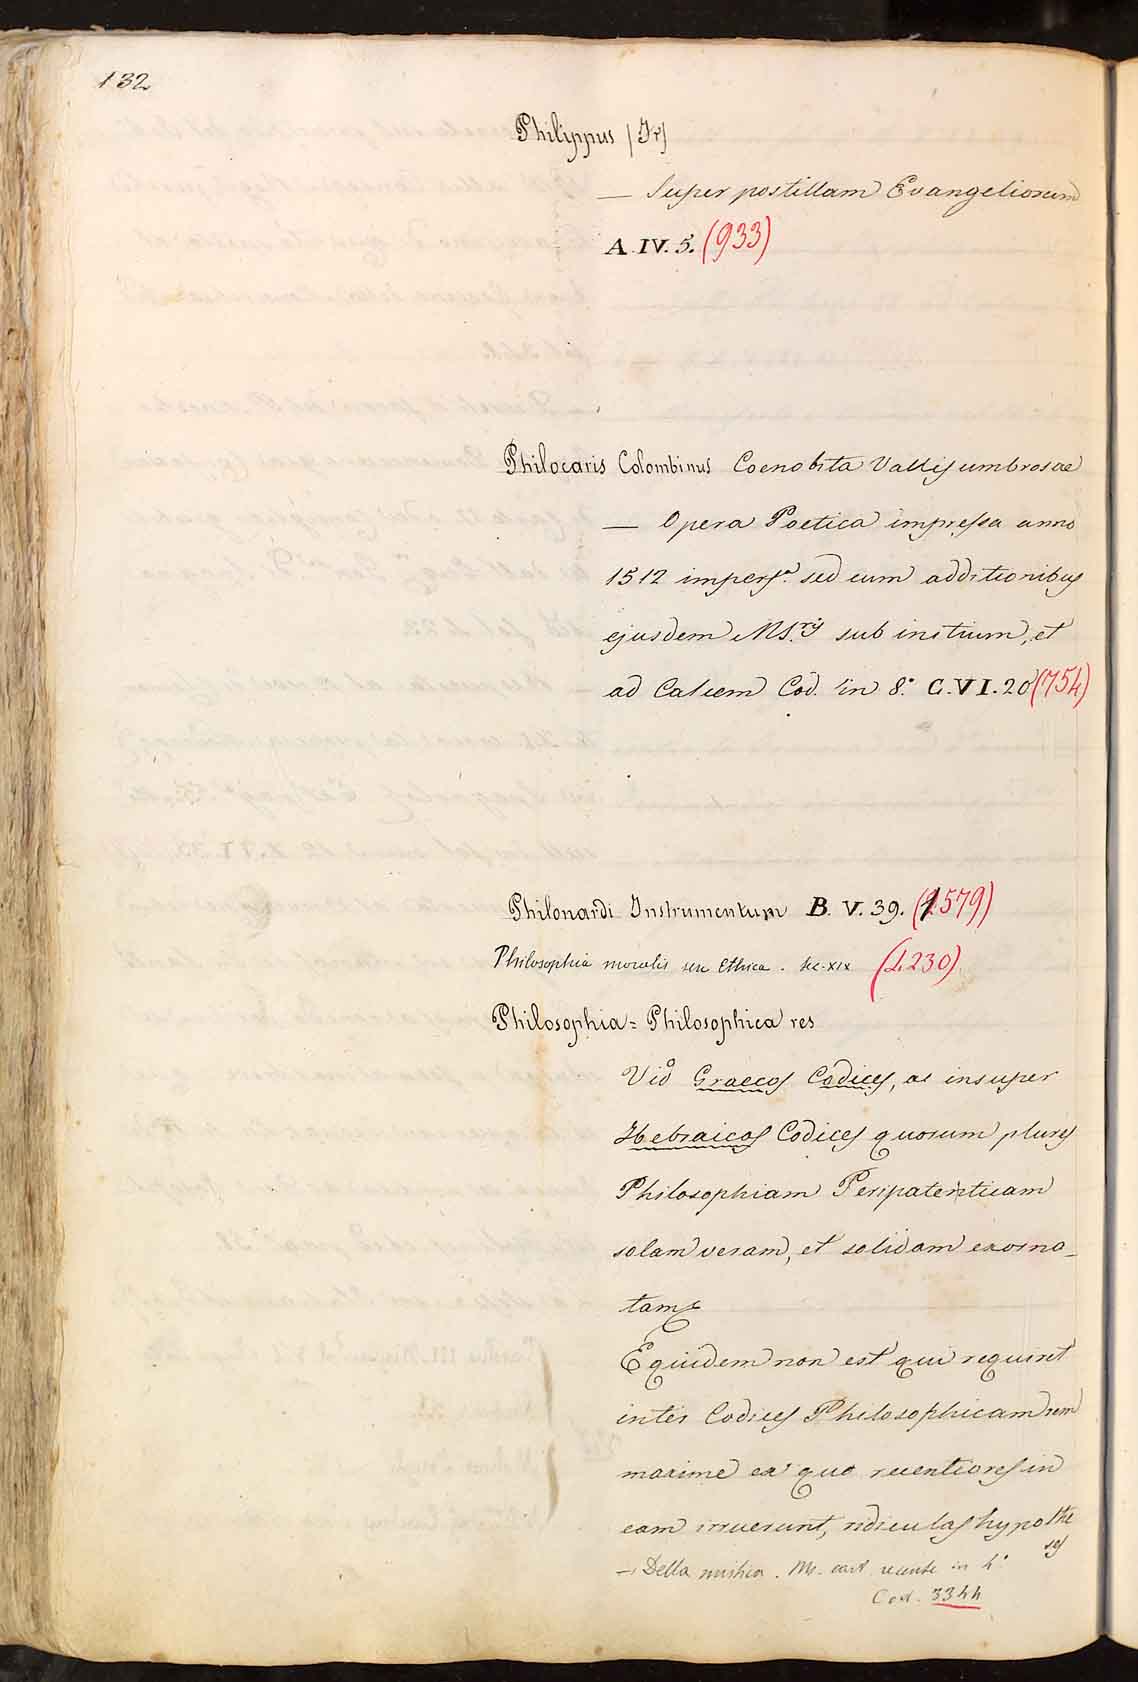 132
Philippus (Fr)
— Super postillam Evangeliorum
A.IV.5. (933)
Philocaris Colombinus Coenobita Vallisumbrosae
— Opera Poetica impressa anno
1512 impersa. sed cum additionibus
ejusdem MS.ris sub initium, et
ad Calcem Cod. in 8.° C.VI.20 (754)
Philonardi Instrumentum B. V. 39. (1579)
Philosophia moralis seu Ethica. sec. XIX (4230)
Philosophia = Philosophica res
Vid Graecos Codices, ac insuper
Hebraicos Codices quorum plures
Philosophiam Peripateticam
solam veram, et solidam exorna-
tam
Equidem non est qui requiret
inter Codices Philosophicam rem
maxime ex quo recentiores in
eam irruerunt, ridiculas hypothe
ses
— Della mistica. Ms. cart. recente in 4°
Cod. 3344